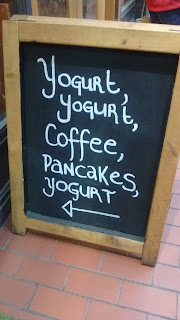 Yogurt,
yogurt,
Coffee,
Pancakes,
YOGURT